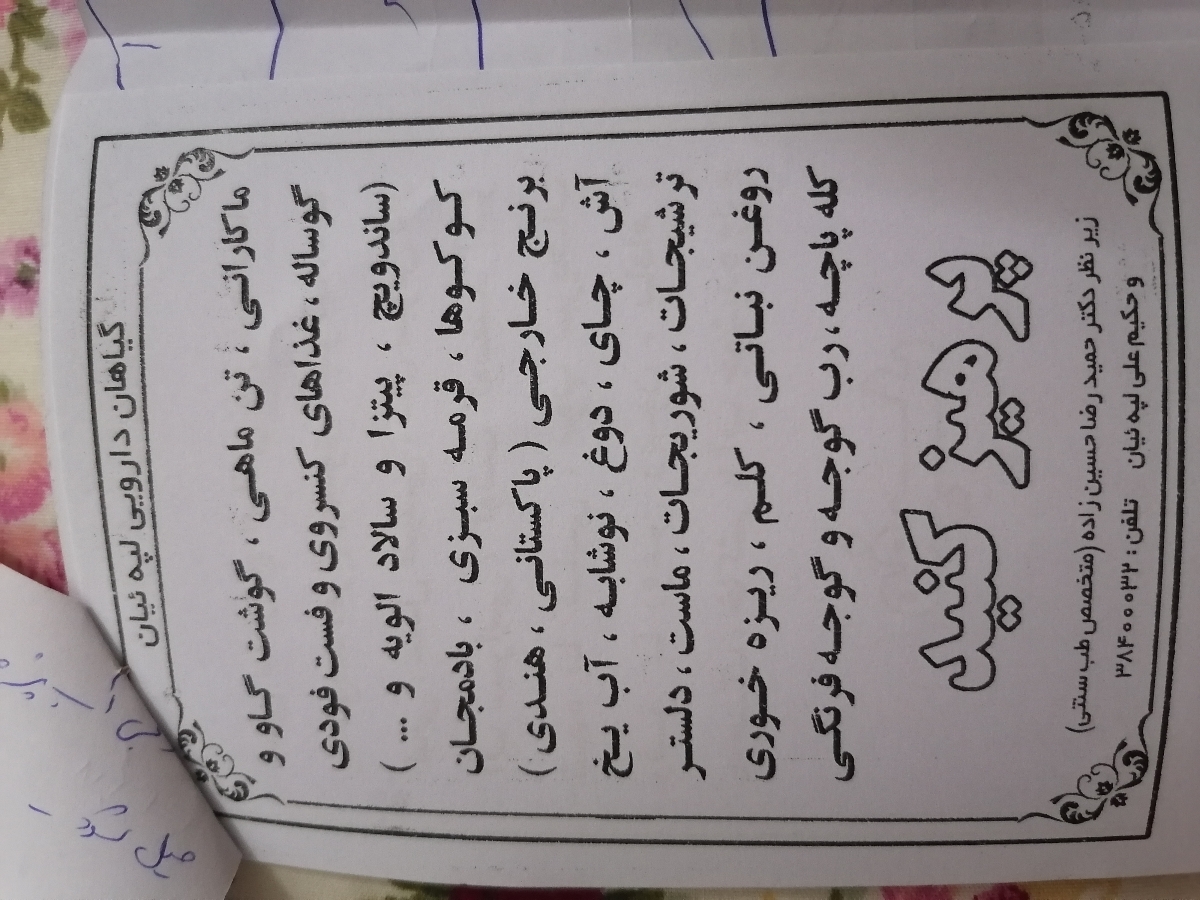 گیاهان دارویی لپه ئیان
ماکارانی ، تن ماهی ، گوشت گاو و
گوساله، غذاهای کنسروی و فست فودی
(ساندویچ ، پیتزا و سالاد الویه و ... )
کوکوها ، قرمه سبزی ، بادمجان
برنج خارجی ( پاکستانی ، هندی )
آش ، چای ، دوغ ، نوشابه ، آب یخ
ترشیجات، شوریجات، ماست، دلستر
روغن نباتی ، کلم ، ریزه خوری
کله پاچه، رب گوجه و گوجه فرنگی
پرهیز کنید
زیر نظر دکتر حمید رضا حسین زاده (متخصص طب سنتی)
و حکیم علی لپه ئیان تلفن : ۳۸۴۰۰۰۳۲